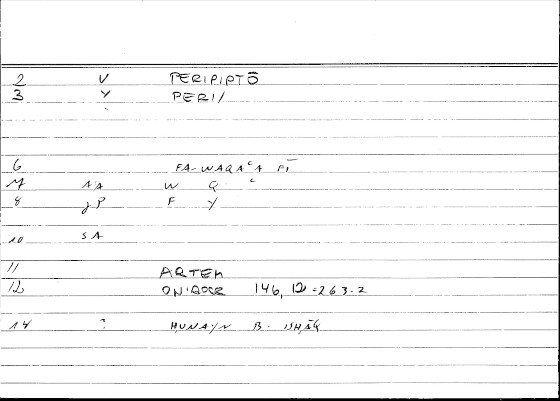 2 V PERIPIPTŌ
3 Y PERI/
6 FA-WAQAʿA FĪ
7 AA W Q ʿ
8 gP F Y
10 SA
11 ARTEM
12 ONIROCR 146, 12 = 263.2
14 : HUNAYN B. ISHĀQ